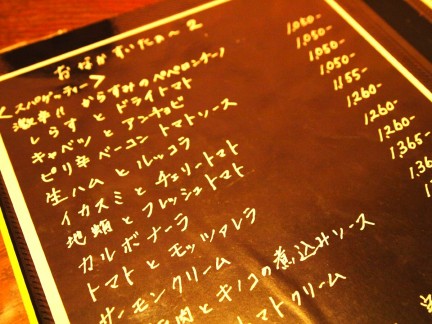 おなかすいたぁ〜 2
<スパゲーティー>
激辛!! からすみのペペロンチーノ 1,050-
しらす と ドライトマト 1,050-
キャベツ と アンチョビ 1,050-
ピリ辛 ベーコン トマトソース 1155-
生ハム と ルッコラ 1,260-
イカスミ と チェリートマト 1,260-
地蛸 と フレッシュトマト 1,260-
カルボナーラ 1,365-
トマト と モッツァレラ
サーモンクリーム
肉 と キノコの煮込みソース
トマトクリーム